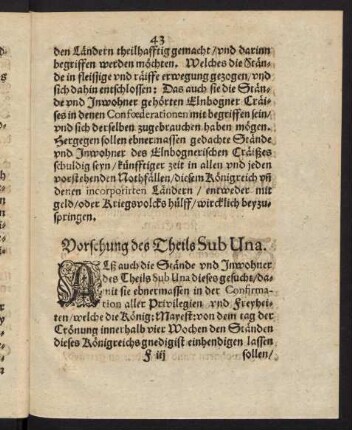 43
den Ländern theilhafftig gemacht/vnd darinn
begriffen werden möchten. Welches die Stän-
de in fleissige vnd räiffe erwegung gezogen/vnd
sich dahin entschlossen: Das auch sie die Stän-
de vnd Inwohner gehörten Elnbogner Cräi-
ses in denen Confœderationen mit begriffen sein/
vnd sich derselben zugebrauchen haben mögen.
Hergegen sollen ebnermassen gedachte Stände
vnd Inwohner des Elnbognerischen Cräißes
schuldig seyn/künfftiger zeit in allen vnd jeden
vorstehenden Nothfällen/diesem Königreich vñ
denen incorporirten Ländern/entweder mit
geld/oder Kriegsvolcks hülff/wircklich beyzu-
springen.
Vorschung des Theils Sub Una.
ALß auch die Stände vnd Inwohner
des Theils Sub Una dieses gesucht/da-
mit sie ebnermassen in der Confirma-
tion aller Privilegien vnd Freyhei-
ten/welche die König: Mayest: von dem tag der
Crönung innerhalb vier Wochen den Ständen
dieses Königreichs gnedigist einhendigen lassen
F iij sollen/